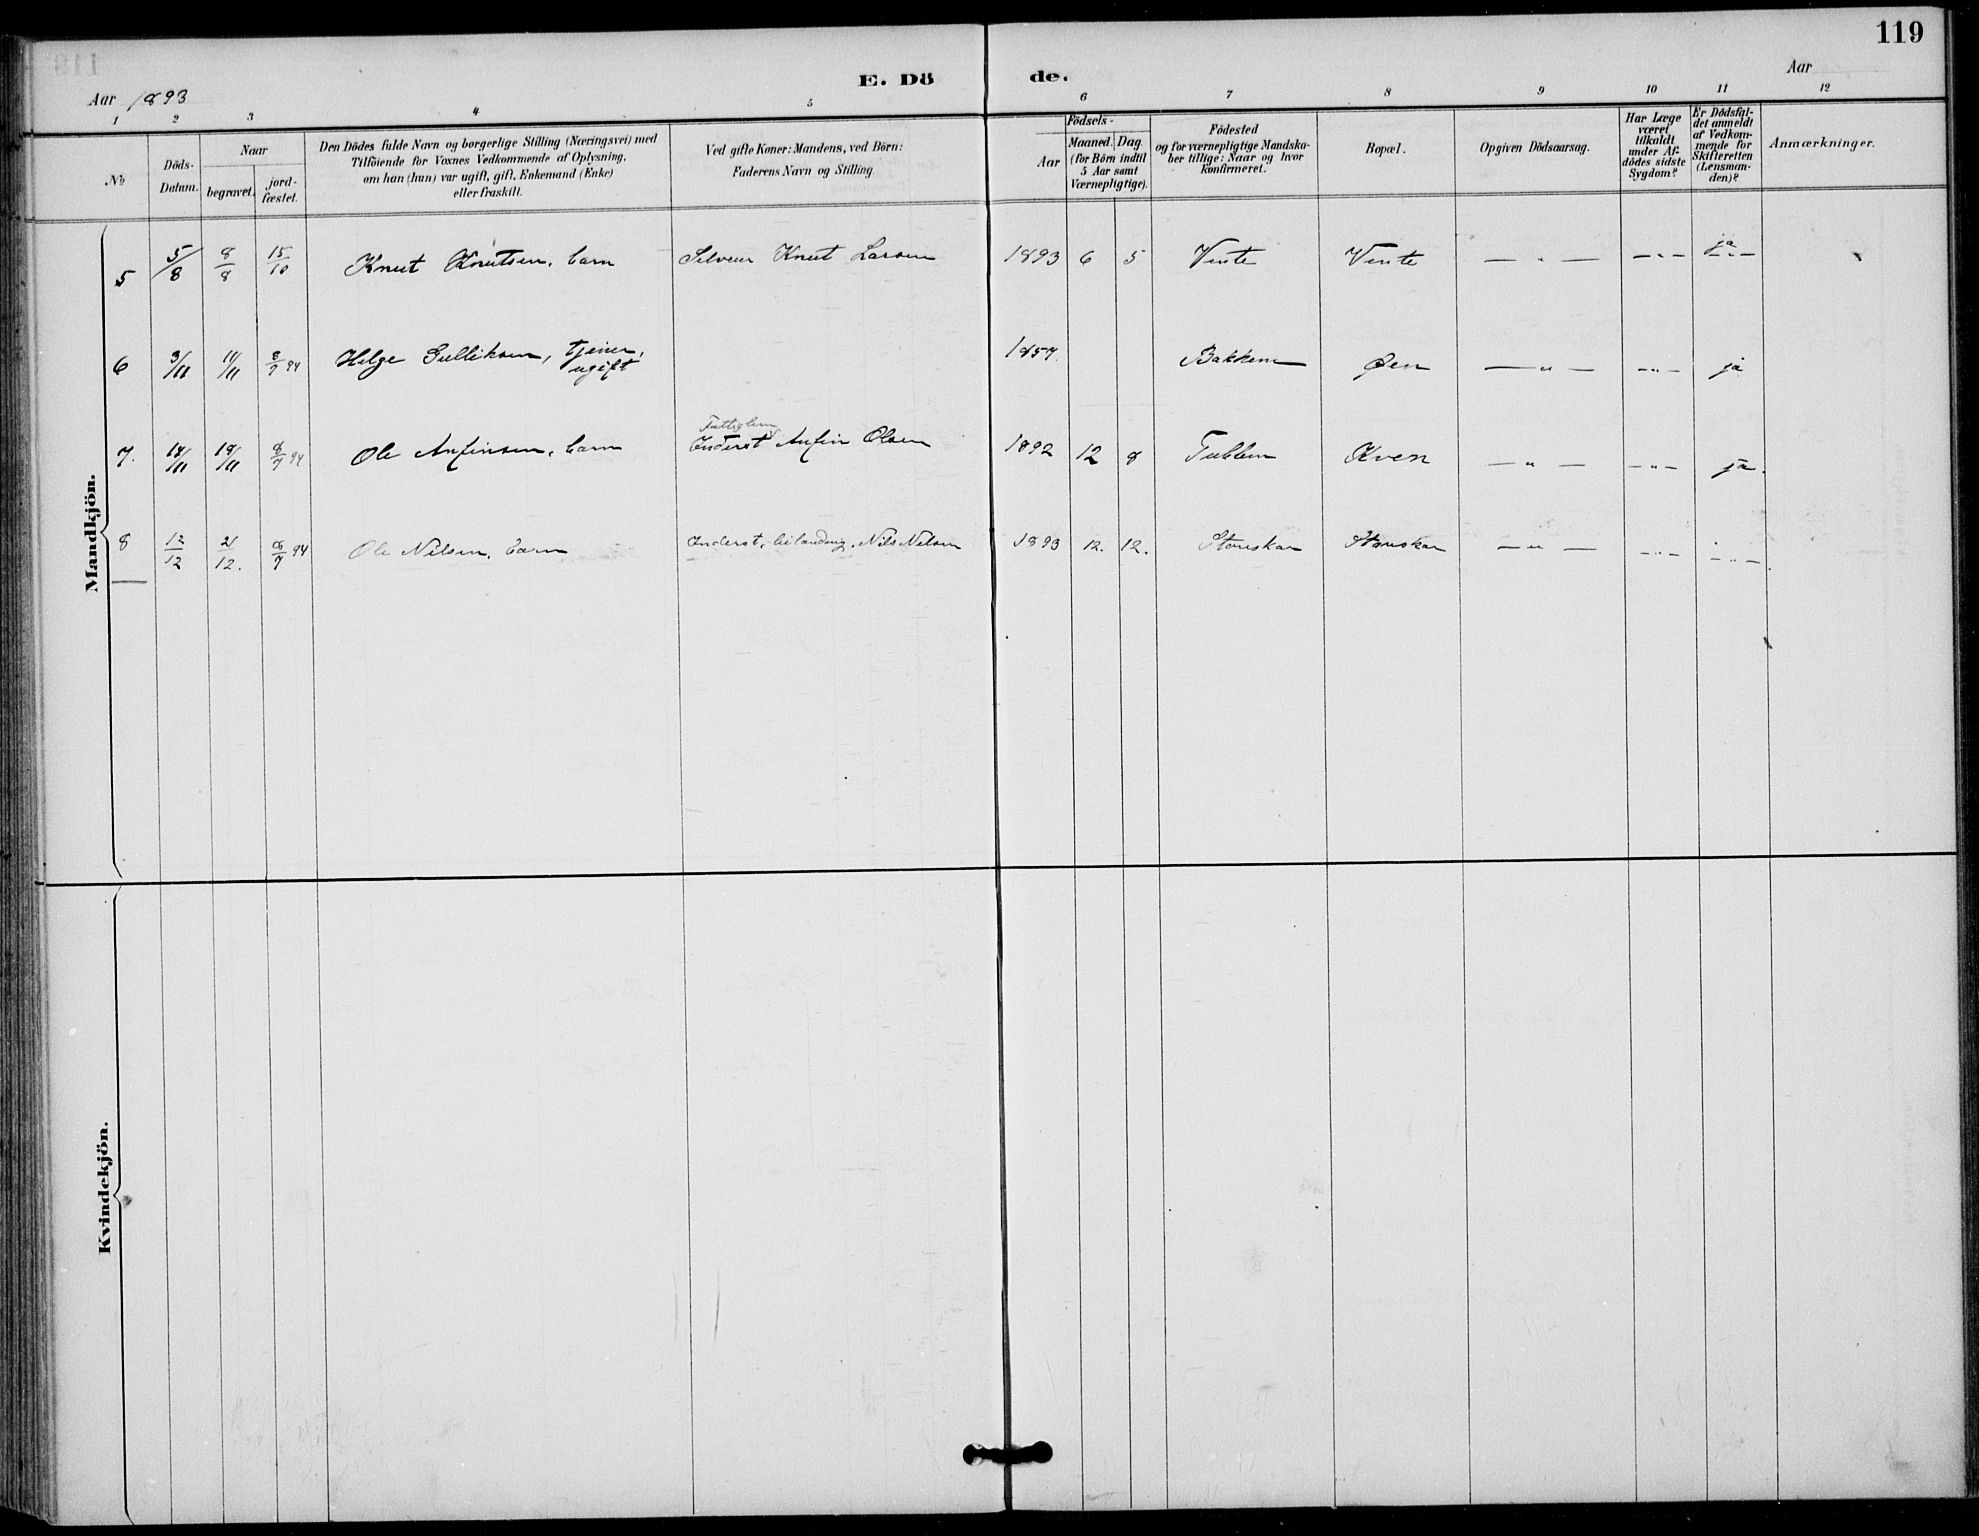 119
E. Dö de.
Aar 1893
Aar
1 2 3 4 5 6 7 8 9 10 11 12
№
Döds-Datum.
Naar
begravet.
jord-fæstet.
Den Dödes fulde Navn og borgerlige Stilling (Næringsvei) med
Tilföiende for Voxnes Vedkommende af Oplysning,
om han (hun) var ugift, gift, Enkemand (Enke)
eller fraskilt.
Ved gifte Koner: Mandens, ved Börn:
Faderens Navn og Stilling.
Födsels-
Aar
Maaned. Dag.
(for Börn indtil
5 Aar samt
Værnepligtige).
Födested
og for værnepligtige Mandska-
ber tillige: Naar og hvor
konfirmeret.
Bopæl.
Opgiven Dödsaarsag.
Har Læge
været
tilkaldt
under Af-
dödes sidste
Sygdom?
Er Dödsfal-
det anmeldt
af Vedkom-
mende for
Skifteretten
(Lensman-
den)?
Anmærkninger.
Mandkjön.
5 5/8 8/8 15/10 Knut Knutsen, barn Selveier Knut Larsen 1893 6 5 Vinte Vinte — " — — " — ja — " —
6 3/11 11/11 8/7 94 Helge Gulliksen, tjener, ugift 1857. Bakken Øen — " — — " — ja
7. 14/11 18/11 8/7 94 Ole Anfinsen, barn Inderst Anfin Olsen 1892 12 8 Tublem Kven — " — — " — ja.
8 12/12 21/12. 8/7 94 Ole Nilsen, barn Inderst, Nils Nilsen 1893 12. 12. — " — — " — — " —.
Kvindekjön.